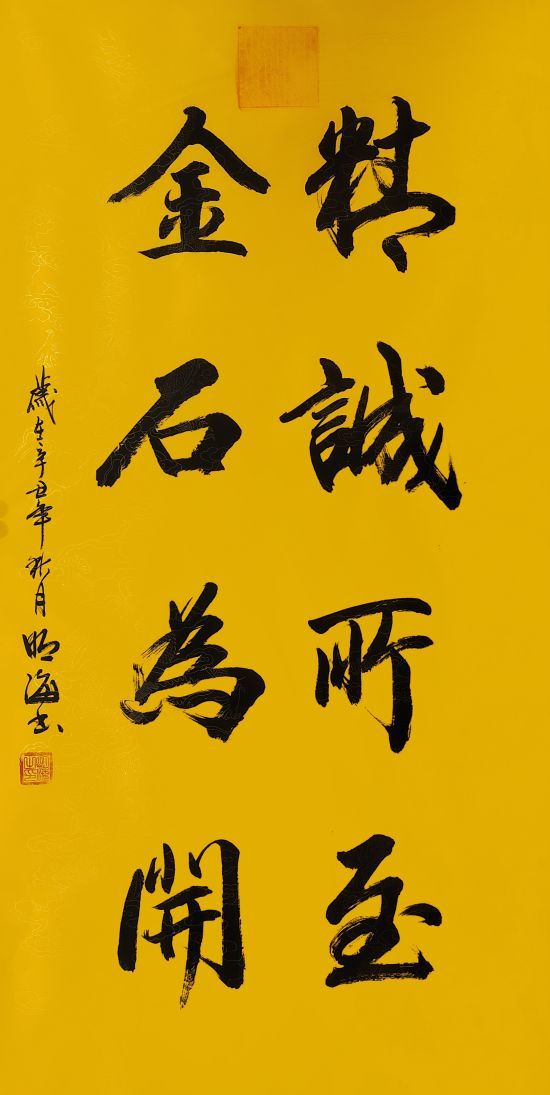 精誠所至
金石為開
歲在辛丑年秋月明海书